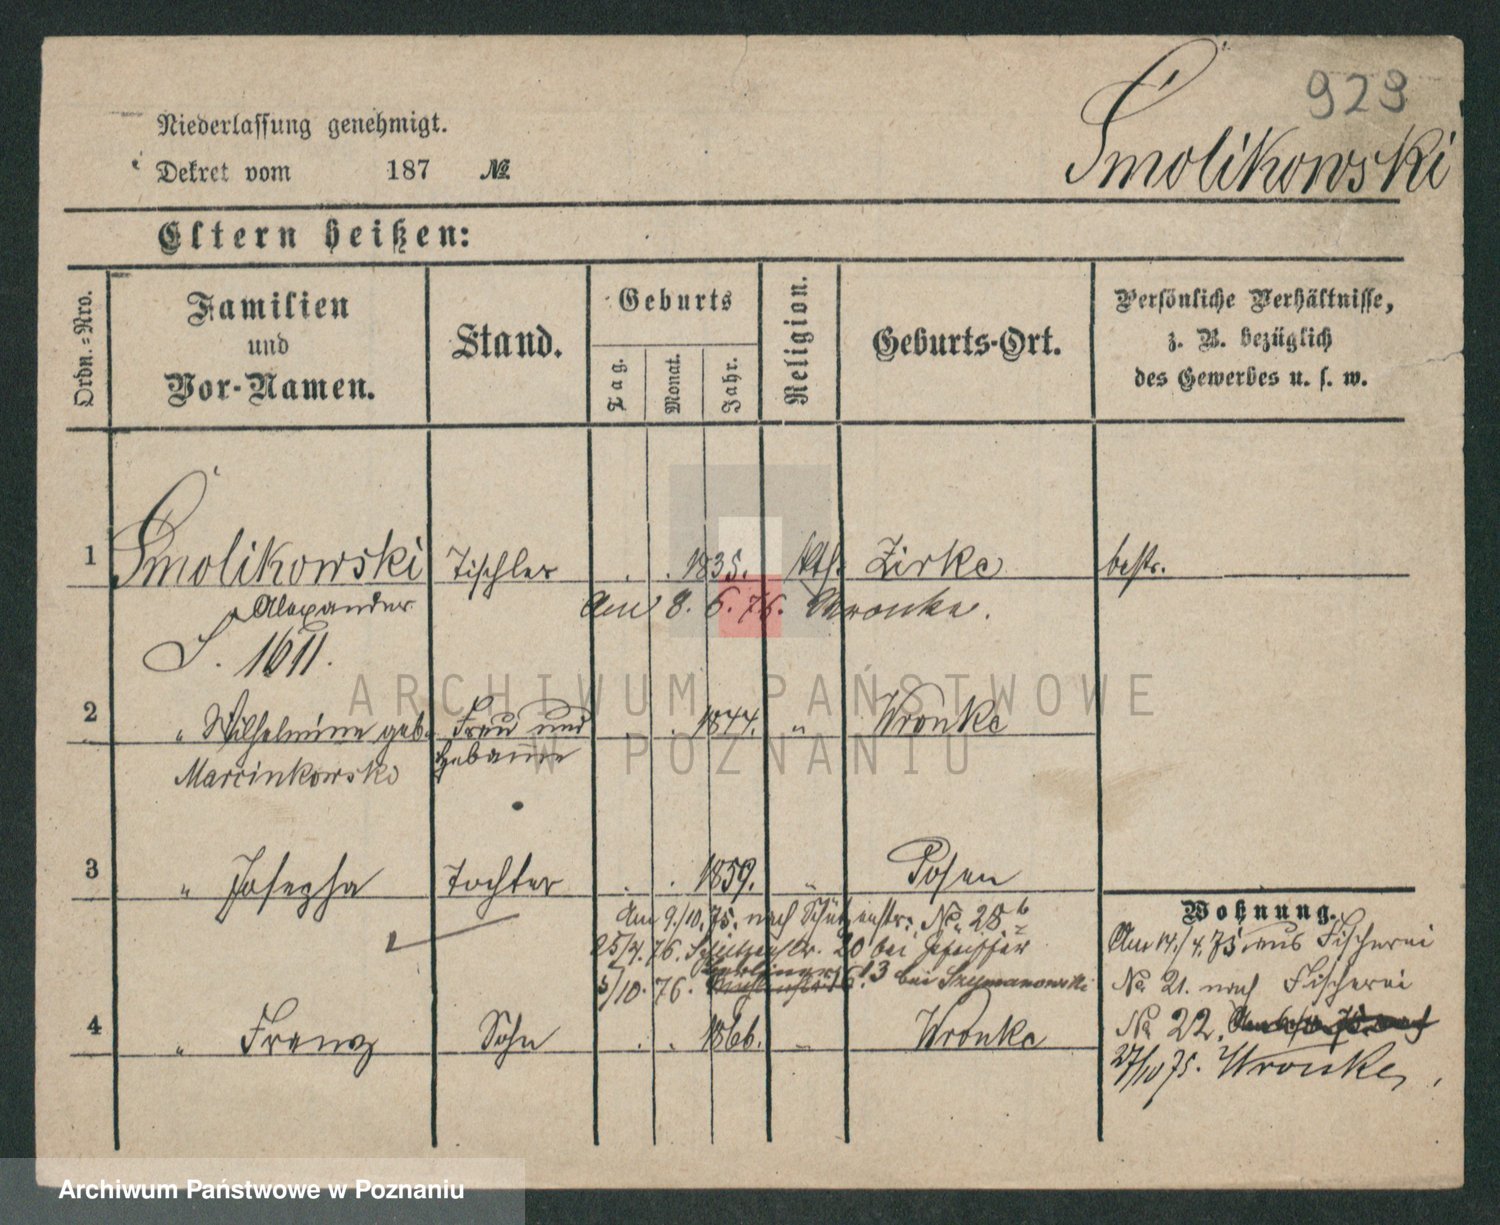 929
Smolikowski
Niederlassung genehmigt.
Dekret vom 187 №
Eltern heißen:
Ordn.=Nro.
Familien
und
Vor-Namen.
Stand.
Geburts
Tag.
Monat.
Jahr.
Religion.
Geburts-Ort.
Persönliche Verhältnisse,
z. B. bezüglich
des Gewerbes u. s. w.
1 Smolikowski Tischler . . 1835. kth. Zirke bestr.
Alexander
Am 8. 6. 76. Wronke.
S. 1611.
2 " Wilhelmine geb. Frau und . . 1844. " Wronke
Marcinkowski Hebamme
3 " Josepha Tochter . . 1859. " Posen
Am 9./10. 75. nach Schützenstr. No. 28 b
25/4. 76. Schützenstr. 20 bei Pfeiffer
5/10. 76. 13 bei Szymanowski
4 " Franz Sohn . . 1866. " Wronke
Wohnung.
Am 14./4. 75 aus Fischerei
No 21. nach Fischerei
No 22.
27/10 75. Wronke,
ARCHIWUM PAŃSTWOWE
W POZNANIU
Archiwum Państwowe w Poznaniu